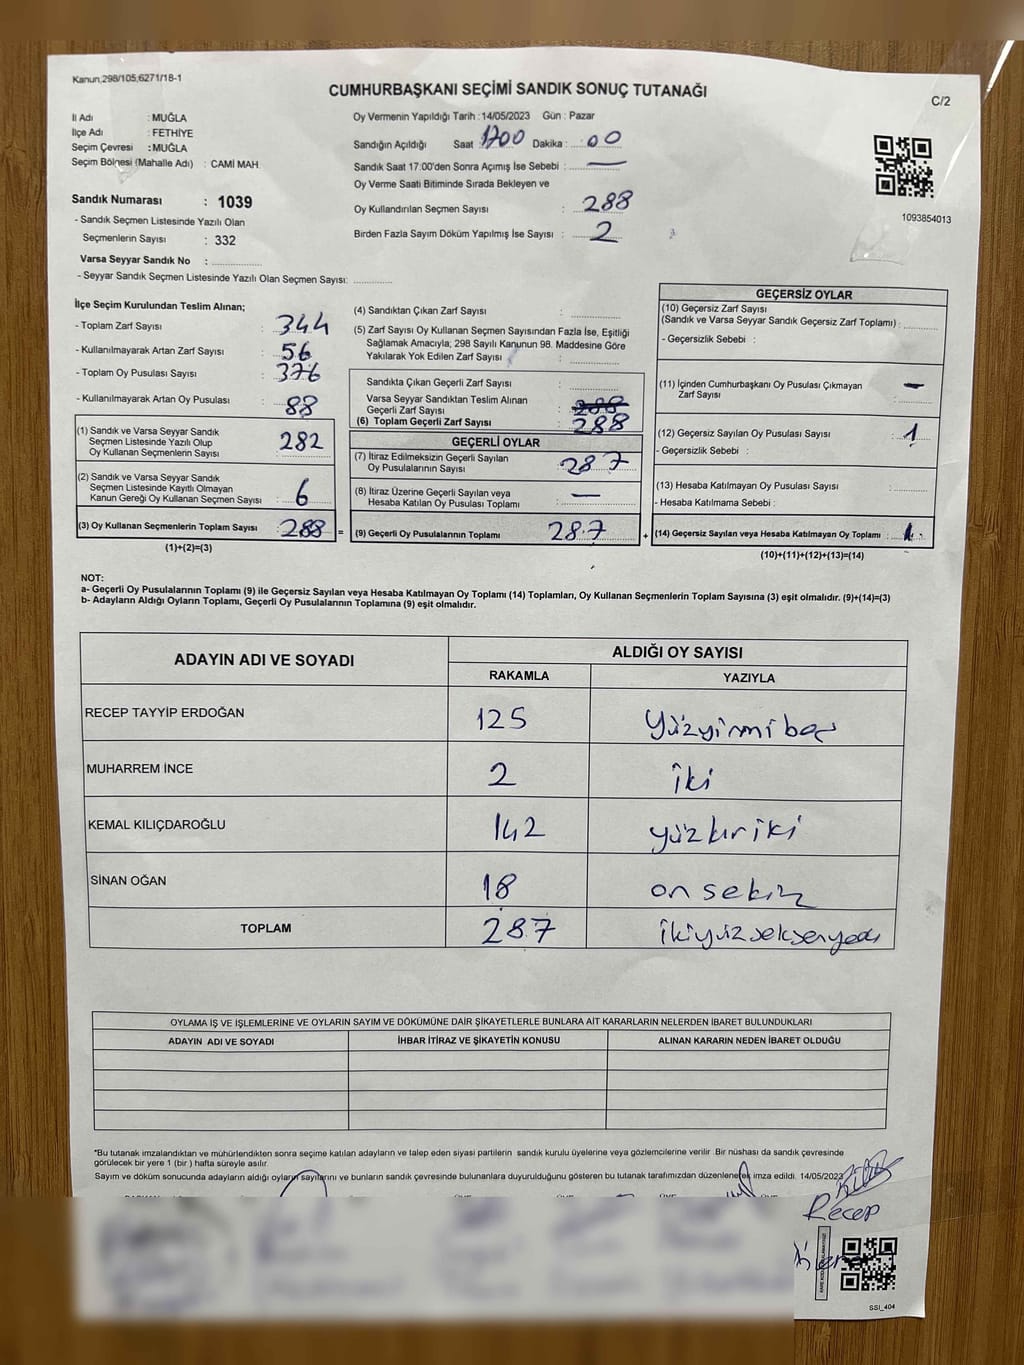 Kanun,298/105;6271/18-1
CUMHURBAŞKANI SEÇİMİ SANDIK SONUÇ TUTANAĞI
C/2
İl Adı : MUĞLA
İlçe Adı : FETHİYE
Seçim Çevresi : MUĞLA
Seçim Bölgesi (Mahalle Adı) : CAMİ MAH.
Sandık Numarası : 1039
- Sandık Seçmen Listesinde Yazılı Olan
Seçmenlerin Sayısı : 332
Varsa Seyyar Sandık No :
- Seyyar Sandık Seçmen Listesinde Yazılı Olan Seçmen Sayısı:
Oy Vermenin Yapıldığı Tarih : 14/05/2023 Gün : Pazar
Sandığın Açıldığı Saat 1700 Dakika : 00
Sandık Saat 17:00'den Sonra Açımış İse Sebebi : —
Oy Verme Saati Bitiminde Sırada Bekleyen ve
Oy Kullandırılan Seçmen Sayısı : 288
Birden Fazla Sayım Döküm Yapılmış İse Sayısı : 2
1093854013
İlçe Seçim Kurulundan Teslim Alınan;
- Toplam Zarf Sayısı : 344
- Kullanılmayarak Artan Zarf Sayısı : 56
- Toplam Oy Pusulası Sayısı : 376
- Kullanılmayarak Artan Oy Pusulası : 88
(1) Sandık ve Varsa Seyyar Sandık
Seçmen Listesinde Yazılı Olup
Oy Kullanan Seçmenlerin Sayısı : 282
(2) Sandık ve Varsa Seyyar Sandık
Seçmen Listesinde Kayıtlı Olmayan
Kanun Gereği Oy Kullanan Seçmen Sayısı : 6
(3) Oy Kullanan Seçmenlerin Toplam Sayısı : 288 =
(1)+(2)=(3)
(4) Sandıktan Çıkan Zarf Sayısı :
(5) Zarf Sayısı Oy Kullanan Seçmen Sayısından Fazla İse, Eşitliği
Sağlamak Amacıyla; 298 Sayılı Kanunun 98. Maddesine Göre
Yakılarak Yok Edilen Zarf Sayısı :
Sandıkta Çıkan Geçerli Zarf Sayısı :
Varsa Seyyar Sandıktan Teslim Alınan
Geçerli Zarf Sayısı : 288
(6) Toplam Geçerli Zarf Sayısı : 288
GEÇERLİ OYLAR
(7) İtiraz Edilmeksizin Geçerli Sayılan
Oy Pusulalarının Sayısı : 287
(8) İtiraz Üzerine Geçerli Sayılan veya
Hesaba Katılan Oy Pusulası Toplamı : —
(9) Geçerli Oy Pusulalarının Toplamı : 287 +
GEÇERSİZ OYLAR
(10) Geçersiz Zarf Sayısı
(Sandık ve Varsa Seyyar Sandık Geçersiz Zarf Toplamı) :
- Geçersizlik Sebebi :
(11) İçinden Cumhurbaşkanı Oy Pusulası Çıkmayan —
Zarf Sayısı :
(12) Geçersiz Sayılan Oy Pusulası Sayısı : 1
- Geçersizlik Sebebi :
(13) Hesaba Katılmayan Oy Pusulası Sayısı :
- Hesaba Katılmama Sebebi :
(14) Geçersiz Sayılan veya Hesaba Katılmayan Oy Toplamı : 1
(10)+(11)+(12)+(13)=(14)
NOT:
a- Geçerli Oy Pusulalarının Toplamı (9) ile Geçersiz Sayılan veya Hesaba Katılmayan Oy Toplamı (14) Toplamları, Oy Kullanan Seçmenlerin Toplam Sayısına (3) eşit olmalıdır. (9)+(14)=(3)
b- Adayların Aldığı Oyların Toplamı, Geçerli Oy Pusulalarının Toplamına (9) eşit olmalıdır.
ADAYIN ADI VE SOYADI ALDIĞI OY SAYISI
RAKAMLA YAZIYLA
RECEP TAYYİP ERDOĞAN 125 yüzyirmi beş
MUHARREM İNCE 2 iki
KEMAL KILIÇDAROĞLU 142 yüzkırkiki
SİNAN OĞAN 18 on sekiz
TOPLAM 287 ikiyüzseksenyedi
OYLAMA İŞ VE İŞLEMLERİNE VE OYLARIN SAYIM VE DÖKÜMÜNE DAİR ŞİKAYETLERLE BUNLARA AİT KARARLARIN NELERDEN İBARET BULUNDUKLARI
ADAYIN ADI VE SOYADI İHBAR İTİRAZ VE ŞİKAYETİN KONUSU ALINAN KARARIN NEDEN İBARET OLDUĞU
*Bu tutanak imzalandıktan ve mühürlendikten sonra seçime katılan adayların ve talep eden siyasi partilerin sandık kurulu üyelerine veya gözlemcilerine verilir. Bir nüshası da sandık çevresinde
görülecek bir yere 1 (bir ) hafta süreyle asılır.
Sayım ve döküm sonucunda adayların aldığı oyların sayılarını ve bunların sandık çevresinde bulunanlara duyurulduğunu gösteren bu tutanak tarafımızdan düzenlenerek imza edildi. 14/05/2023
Recep
SSI_404